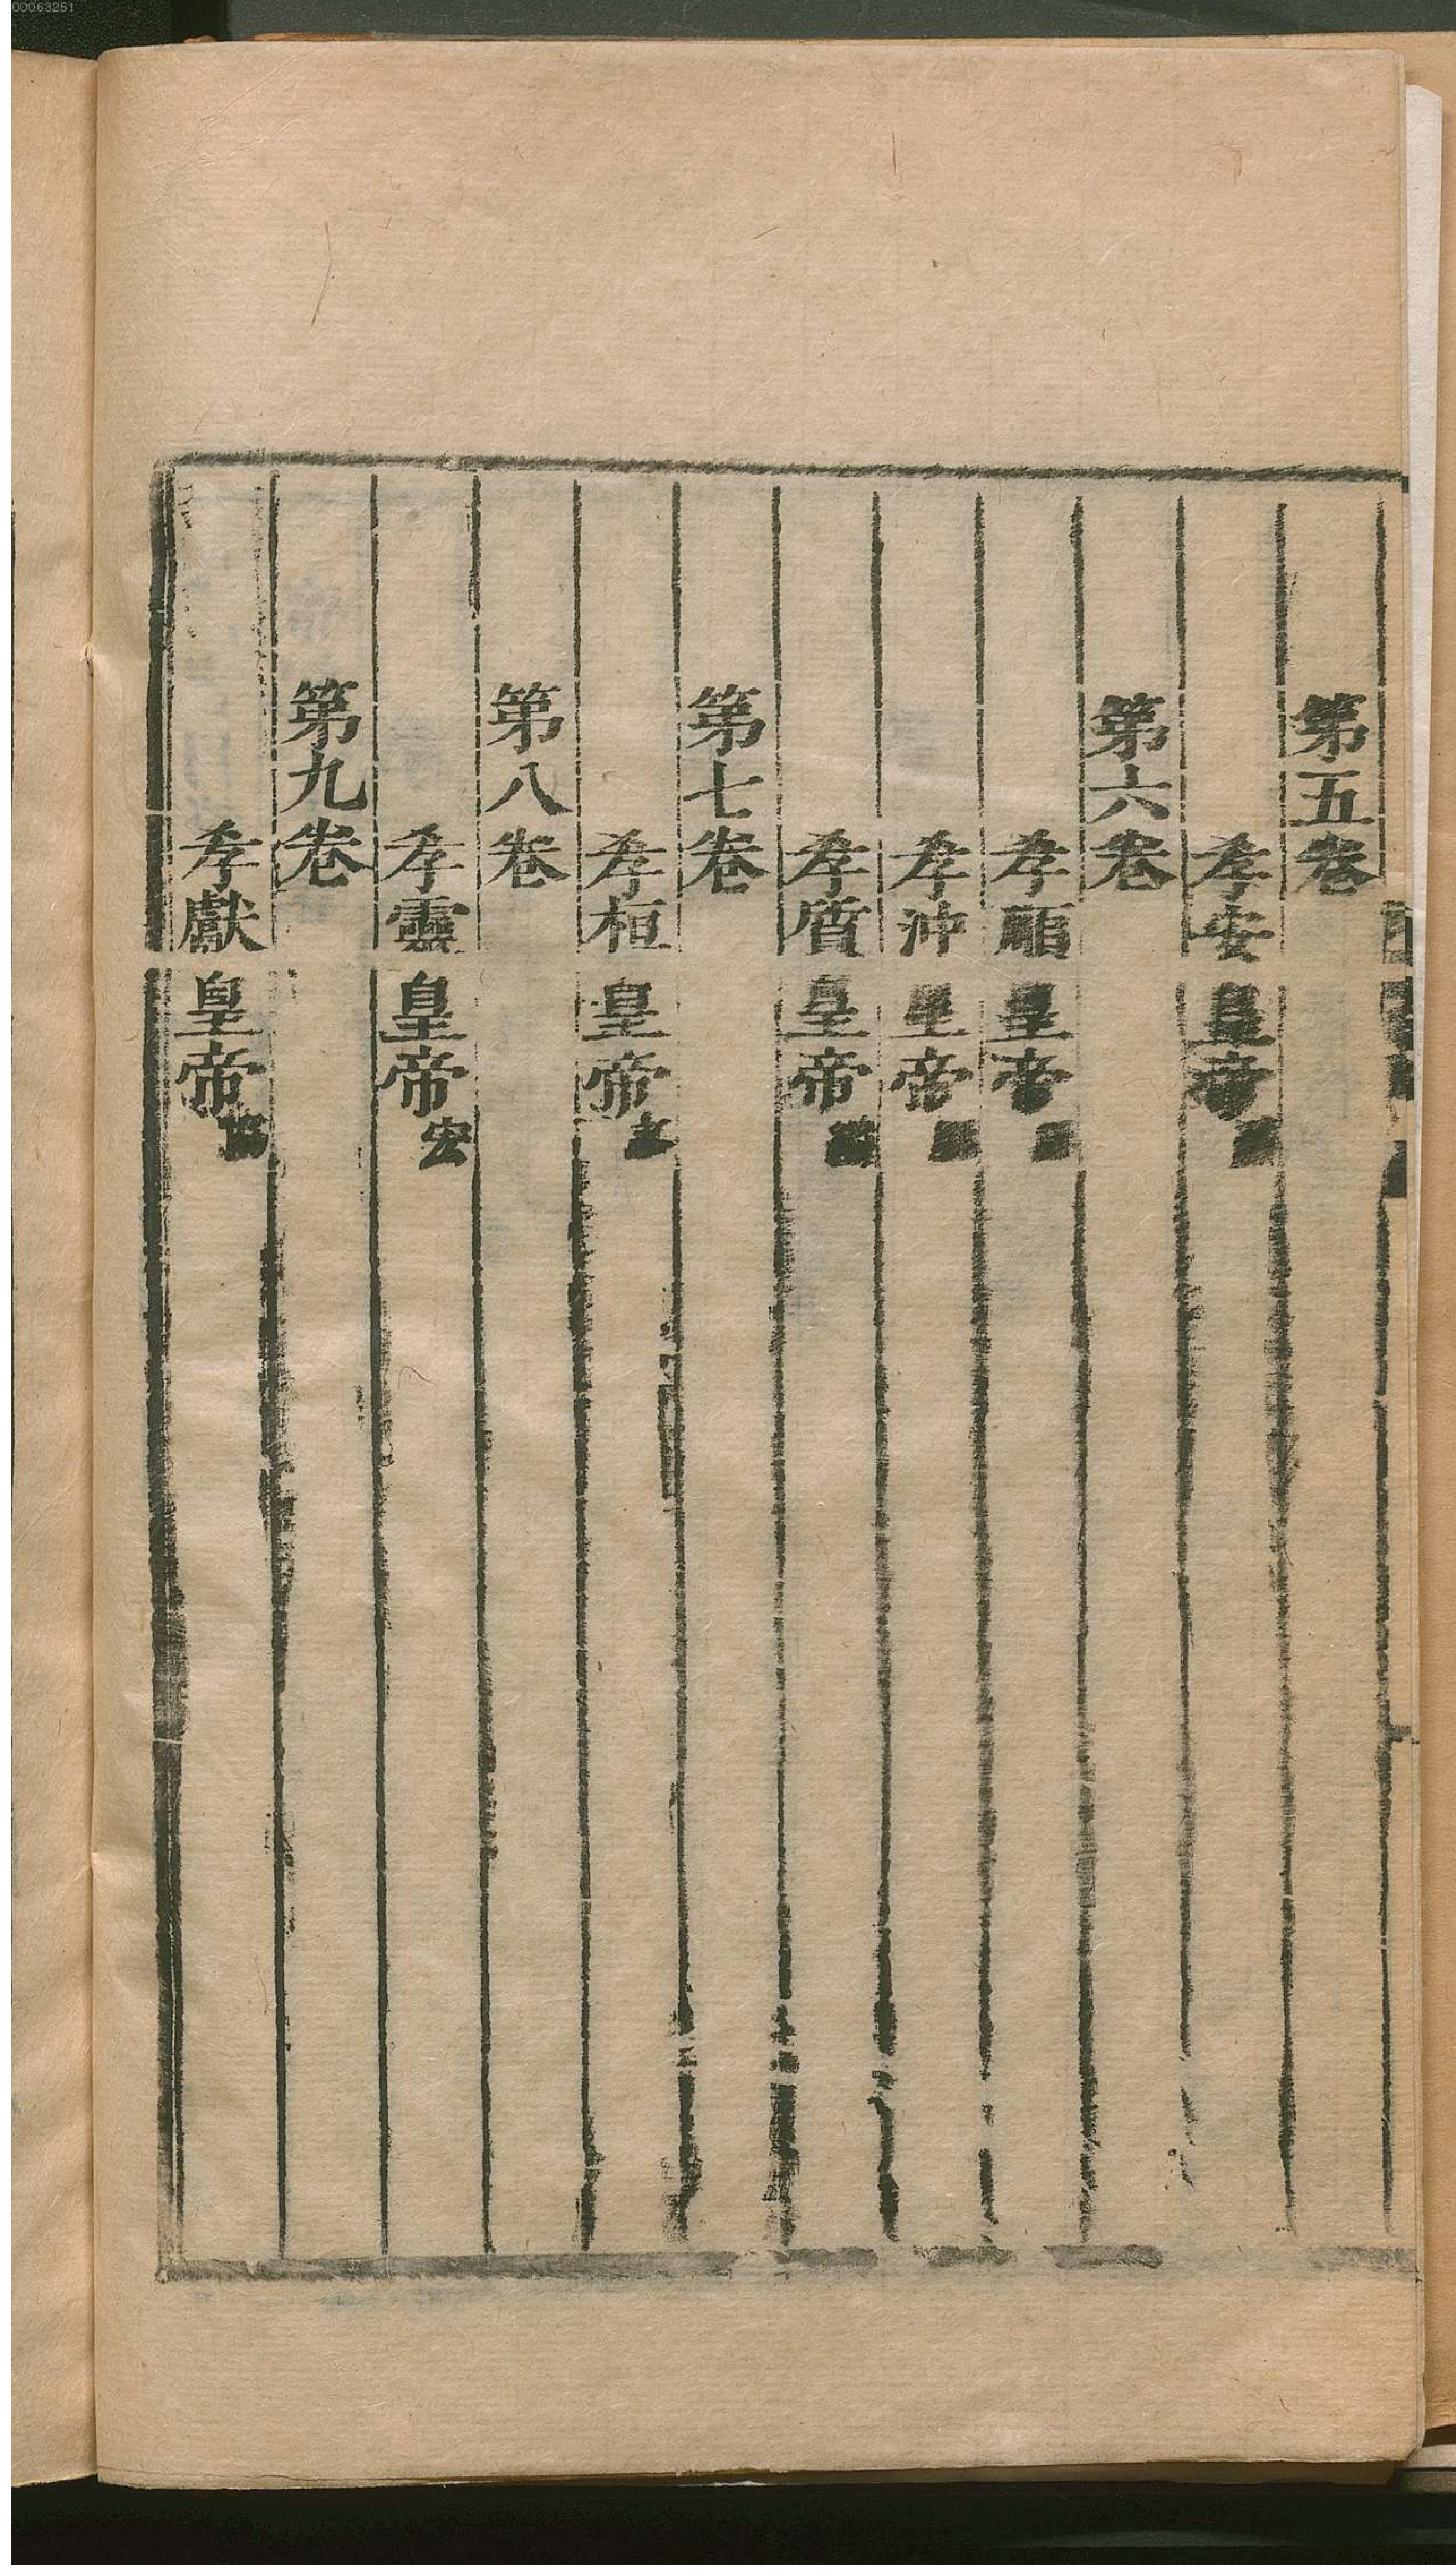 第五卷
孝安皇帝
第六卷
孝順皇帝
孝沖皇帝
孝質皇帝
第七卷
孝桓皇帝
第八卷
孝靈皇帝宏
第九卷
孝獻皇帝
00063251